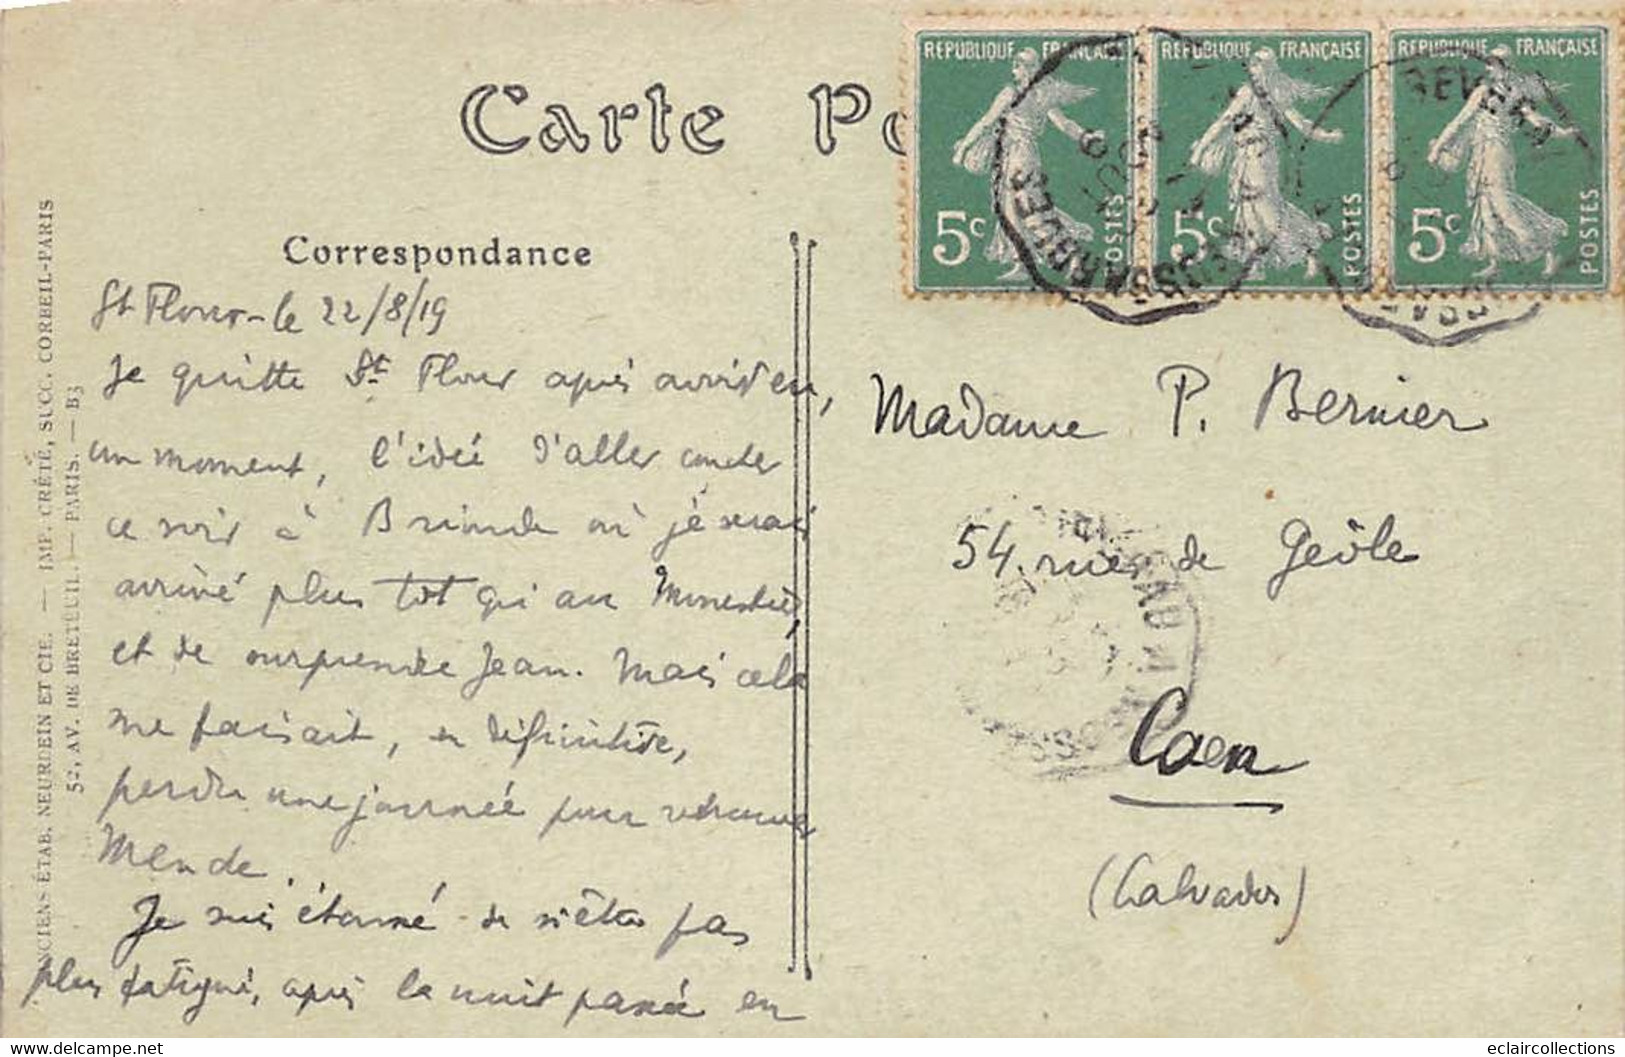 Carte Po
RÉPUBLIQUE FRANÇAISE
5c
POSTES
RÉPUBLIQUE FRANÇAISE
5c
POSTES
RÉPUBLIQUE FRANÇAISE
5c
POSTES
NEUSSARGUES
Correspondance
St Flour - le 22/8/19
Je quitte St Flour après avoir eu,
un moment, l'idée d'aller coucher
ce soir à Brioude où je serais
arrivé plus tot qu'au Monestier,
et de surprendre Jean. Mais cela
me faisait, en définitive,
perdre une journée pour retrouver
Mende.
Je suis étonné de n'être pas
plus fatigué, après la nuit passée en
Madame P. Bernier
54, rue de Geôle
Caen
(Calvados)
ANCIENS ÉTAB. NEURDEIN ET CIE. — IMP. CRÉTÉ, SUCC. CORBEIL-PARIS
52, AV. DE BRETEUIL. — PARIS. — B3
Delcampe.net
eclaircollections